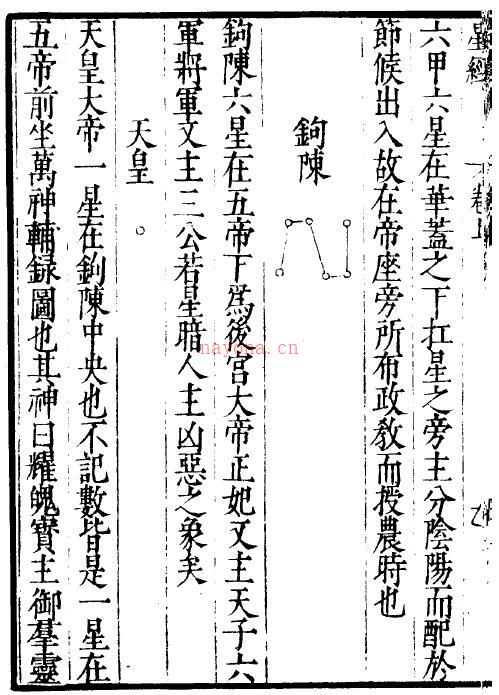 星經 卷上
六甲六星在華蓋之下扛星之旁主分陰陽而配於
節候出入故在帝座旁所布政教而授農時也
鉤陳
鉤陳六星在五帝下爲後宮大帝正妃又主天子六
軍將軍又主三公若星暗人主凶惡之象矣
天皇
天皇大帝一星在鉤陳中央也不記數皆是一星在
五帝前坐萬神輔録圖也其神曰耀魄寶主御羣靈
nayona.cn